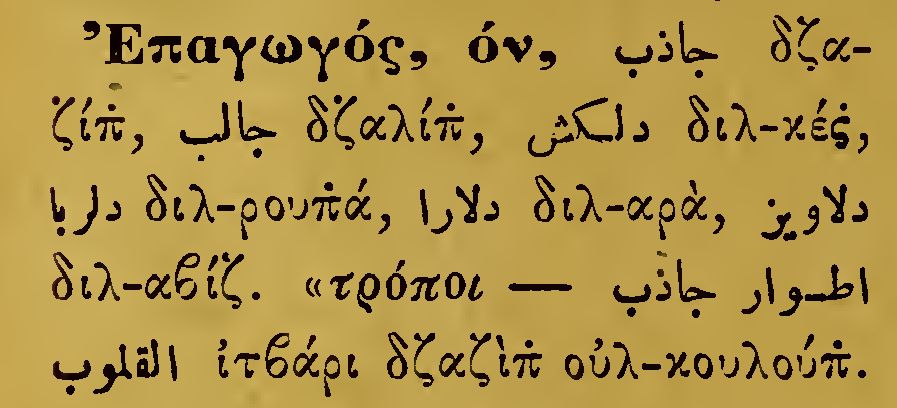 Ἐπαγωγός, όν, جاذب δζα-
ζίπ̇, جالب δζαλίπ̇, دلكش διλ-κές̇,
دلربا διλ-ρουπ̇ά, دلارا διλ-αρὰ, دلاويز
διλ-αβίζ. «τρόποι — اطوار جاذب
القلوب ἰτβάρι δζαζὶπ̇ οὐλ-κουλούπ̇.